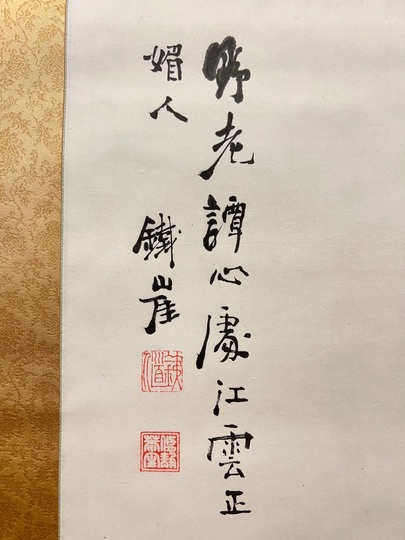 野老譚心處江雲正
媚人
鐵崖